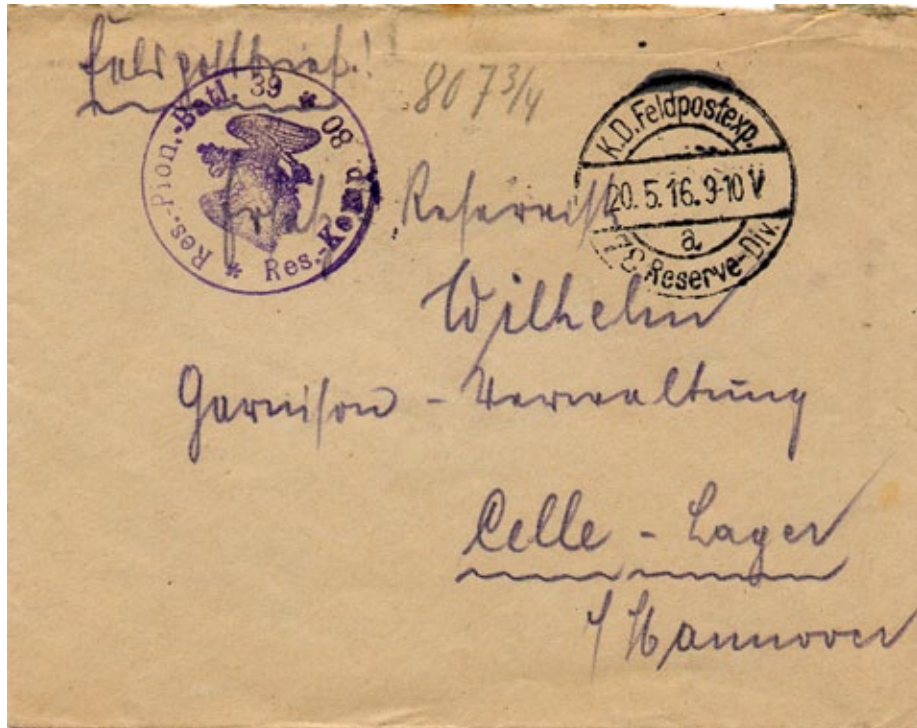 Feldpostbrief!
* Res.-Pion.-Batl. 39 *
Res.-Komp. 80
807 3/4
K.D. Feldpostexp.
20.5.16. 9-10 V
a
Reserve-Div.
Ersatz Reservist
Wilhelm
Garnison - Verwaltung
Celle - Lager
i/Hannover